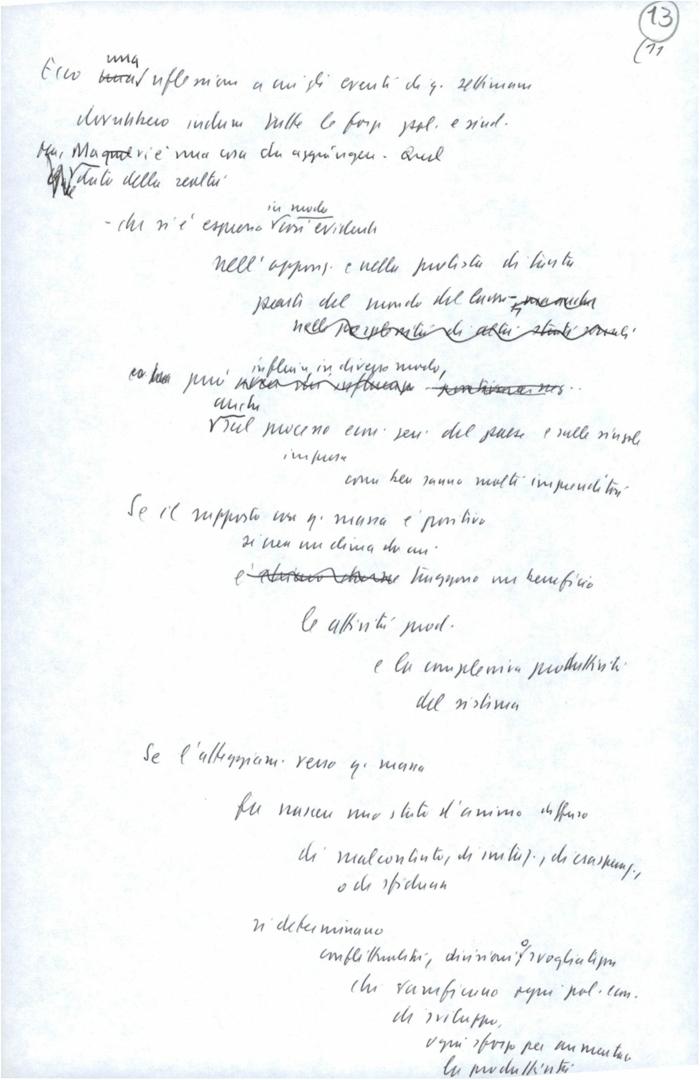 13
(11
una
Ecco riflessione a cui gli eventi di q. settimana
dovrebbero indurre tutte le forze pol. e sind.
Ma, vi è una cosa da aggiungere. Quel
dato della realtà
in modo
- che si è espresso così evidente
nell'appogg. e nella protesta di tanta
parte del mondo del lavoro
nelle perplessità di altri strati sociali
può influire, in diverso modo,
anche
sul processo econ. gen. del paese e sulle singole
imprese
come ben sanno molti imprenditori
Se il rapporto con q. massa è positivo
si crea un clima di cui
è traggono un beneficio
le attività prod.
e la complessiva produttività
del sistema
Se l'atteggiam. verso q. massa
fa nascere uno stato d'animo diffuso
di malcontento, di irritaz., di esasperaz.,
o di sfiducia
si determinano
conflittualità, divisioni o svogliatezze
che vanificano ogni pol. econ.
di sviluppo,
ogni sforzo per aumentare
la produttività